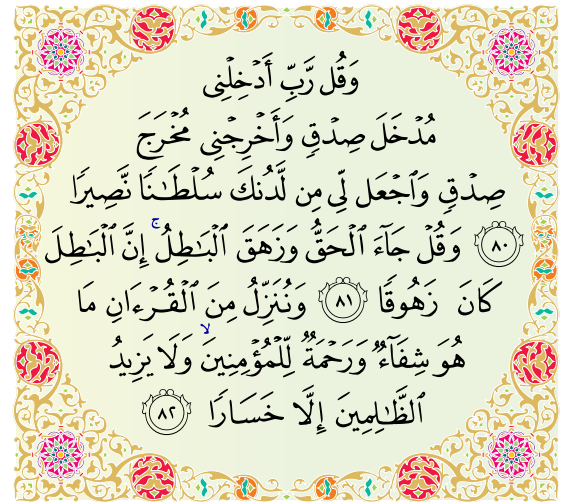 وَقُل رَّبِّ أَدۡخِلۡنِي
مُدۡخَلَ صِدۡقٖ وَأَخۡرِجۡنِي مُخۡرَجَ
صِدۡقٖ وَٱجۡعَل لِّي مِن لَّدُنكَ سُلۡطَٰنٗا نَّصِيرٗا
٨٠ وَقُلۡ جَآءَ ٱلۡحَقُّ وَزَهَقَ ٱلۡبَٰطِلُۚ إِنَّ ٱلۡبَٰطِلَ
كَانَ زَهُوقٗا ٨١ وَنُنَزِّلُ مِنَ ٱلۡقُرۡءَانِ مَا
هُوَ شِفَآءٞ وَرَحۡمَةٞ لِّلۡمُؤۡمِنِينَۙ وَلَا يَزِيدُ
ٱلظَّٰلِمِينَ إِلَّا خَسَارٗا ٨٢